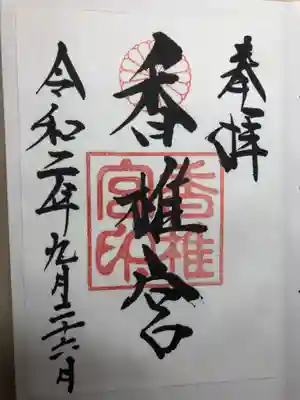 奉拝
香椎宮
香椎
宮印
令和二年九月二十六日